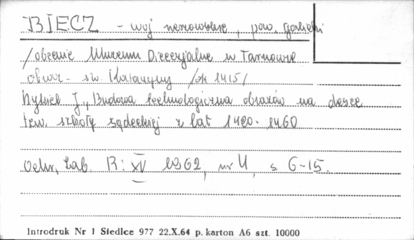 BIECZ - woj rzeszowskie, pow. gorlicki
/obecnie Muzeum Diecezjalne w Tarnowie
obraz - św. Katarzyny /ok 1415/
Dutkiewicz J., Budowa technologiczna obrazów na desce
tzw. szkoły sądeckiej z lat 1420-1460
Ochr. Zab. R: XV 1962, nr 4, s 6-15.
Introdruk Nr 1 Siedlce 977 22.X.64 p. karton A6 szt. 10000